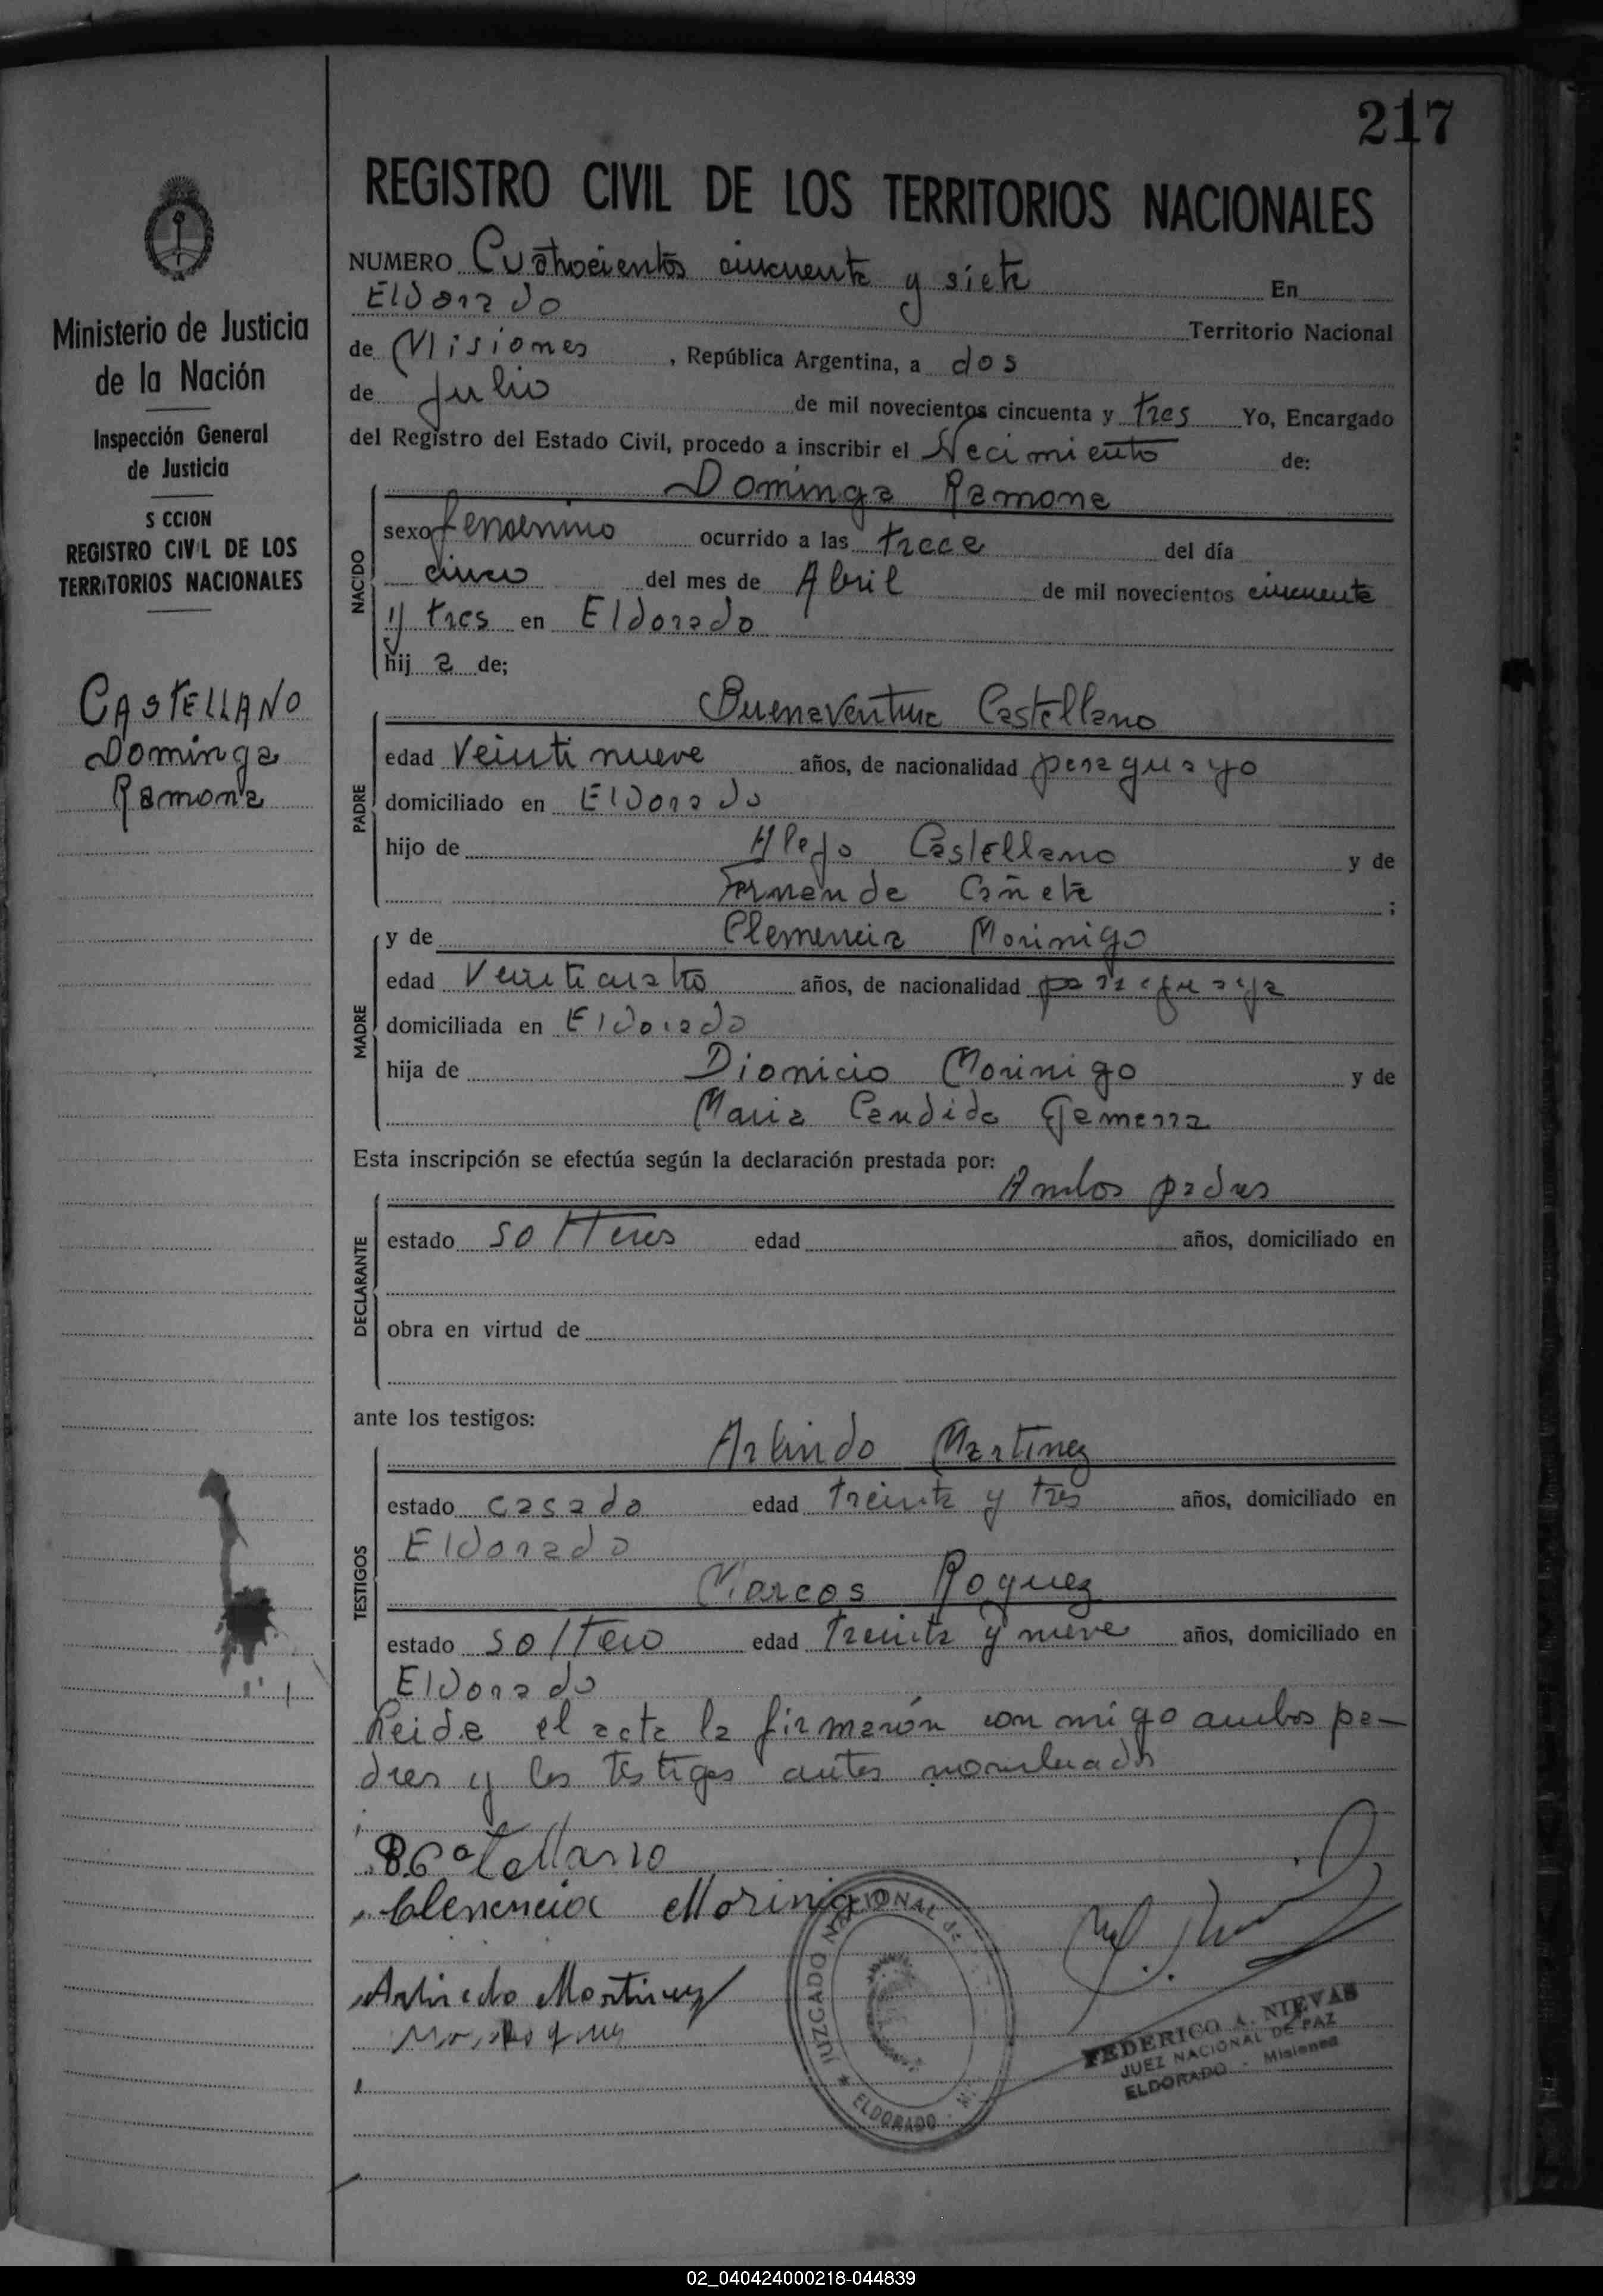 217
REGISTRO CIVIL DE LOS TERRITORIOS NACIONALES
Ministerio de Justicia
de la Nación
Inspección General
de Justicia
S CCION
REGISTRO CIVIL DE LOS
TERRITORIOS NACIONALES
CASTELLANO
Dominga
Ramona
NUMERO Cuatrocientos cincuenta y siete En
Eldorado Territorio Nacional
de Misiones, República Argentina, a dos
de Julio de mil novecientos cincuenta y tres Yo, Encargado
del Registro del Estado Civil, procedo a inscribir el Nacimiento de:
Dominga Ramona
NACIDO
sexo femenino ocurrido a las trece del día
cinco del mes de Abril de mil novecientos cincuenta
y tres en Eldorado
hij a de;
Buenaventura Castellano
PADRE
edad Veinti nueve años, de nacionalidad paraguayo
domiciliado en Eldorado
hijo de Alejo Castellano y de
Fernanda Cañete ;
MADRE
y de Clemencia Morinigo
edad Veinticuatro años, de nacionalidad paraguaya
domiciliada en Eldorado
hija de Dionicio Morinigo y de
Maria Candida Gamarra
Esta inscripción se efectúa según la declaración prestada por:
Ambos padres
DECLARANTE
estado solteros edad años, domiciliado en
obra en virtud de
ante los testigos:
Arlindo Martinez
TESTIGOS
estado casado edad treinta y tres años, domiciliado en
Eldorado
Marcos Roquez
estado soltero edad treinta y nueve años, domiciliado en
Eldorado
Leida el acta la firmarón con migo ambos pa-
dres y los testigos antes nombrados
B. Castellano
Clemencia Morinigo
Arlindo Martinez
JUZGADO NACIONAL DE
ELDORADO
FEDERICO A. NIEVAS
JUEZ NACIONAL DE PAZ
ELDORADO - Misiones
02_040424000218-044839